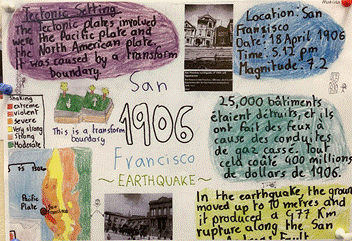 Tectonic Setting
The tectonic plates involved
were the Pacific plate and
the North American plate.
It was caused by a transform
boundary.
Location: San
Fransisco
Date: 18 April 1906
Time: 5.12 pm
Magnitude: 7.2
San
1906
Francisco
~ EARTHQUAKE ~
shaking
extreme
violent
severe
Very strong
strong
Moderate
This is a transform
boundary
25,000 bâtiments
étaient détruits, et ils
ont fait des feux à
cause des conduites
de gaz cassé. Tout
cela coûté 400 millions
de dollars de 1906.
Pacific
Plate
In the earthquake, the ground
moved up to 10 metres and
it produced a 477 Km
rupture along the San